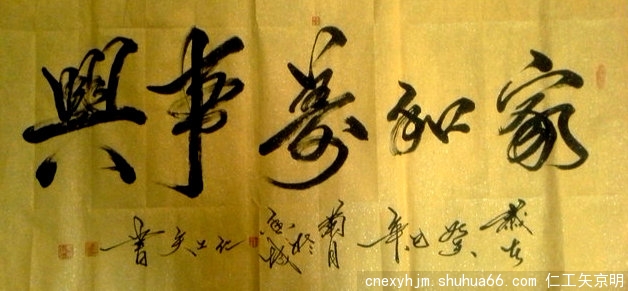 家和萬事興
歲在癸巳年菊月於城仁工矢書
cnexyhjm.shuhua66.com 仁工矢京明